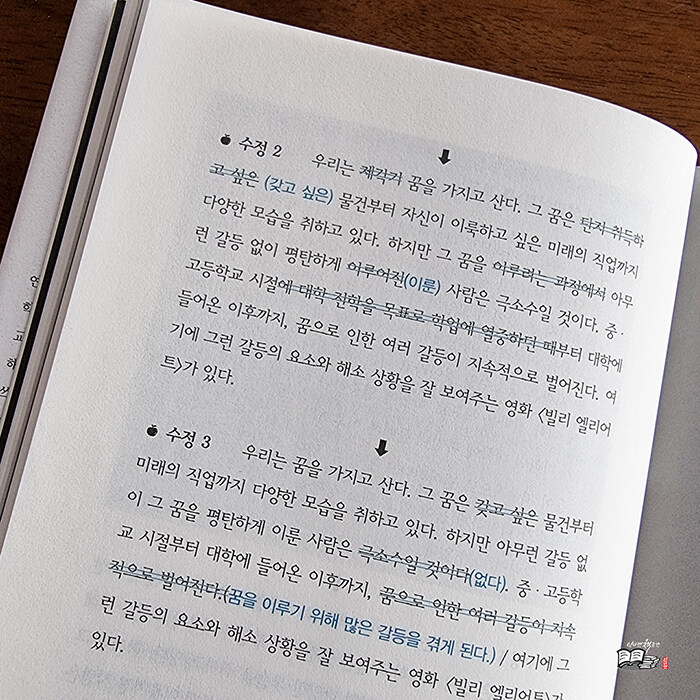 수정 2 우리는 제각기 꿈을 가지고 산다. 그 꿈은 단지 취득하
고 싶은 (갖고 싶은) 물건부터 자신이 이룩하고 싶은 미래의 직업까지
다양한 모습을 취하고 있다. 하지만 그 꿈을 이루려는 과정에서 아무
런 갈등 없이 평탄하게 이루어진(이룬) 사람은 극소수일 것이다. 중·
고등학교 시절에 대학 진학을 목표로 학업에 열중하던 때부터 대학에
들어온 이후까지, 꿈으로 인한 여러 갈등이 지속적으로 벌어진다. 여
기에 그런 갈등의 요소와 해소 상황을 잘 보여주는 영화 〈빌리 엘리어
트〉가 있다.
수정 3 우리는 꿈을 가지고 산다. 그 꿈은 갖고 싶은 물건부터
미래의 직업까지 다양한 모습을 취하고 있다. 하지만 아무런 갈등 없
이 그 꿈을 평탄하게 이룬 사람은 극소수일 것이다(없다). 중·고등학
교 시절부터 대학에 들어온 이후까지, 꿈으로 인한 여러 갈등이 지속
적으로 벌어진다.(꿈을 이루기 위해 많은 갈등을 겪게 된다.) / 여기에 그
런 갈등의 요소와 해소 상황을 잘 보여주는 영화 〈빌리 엘리어트〉가
있다.